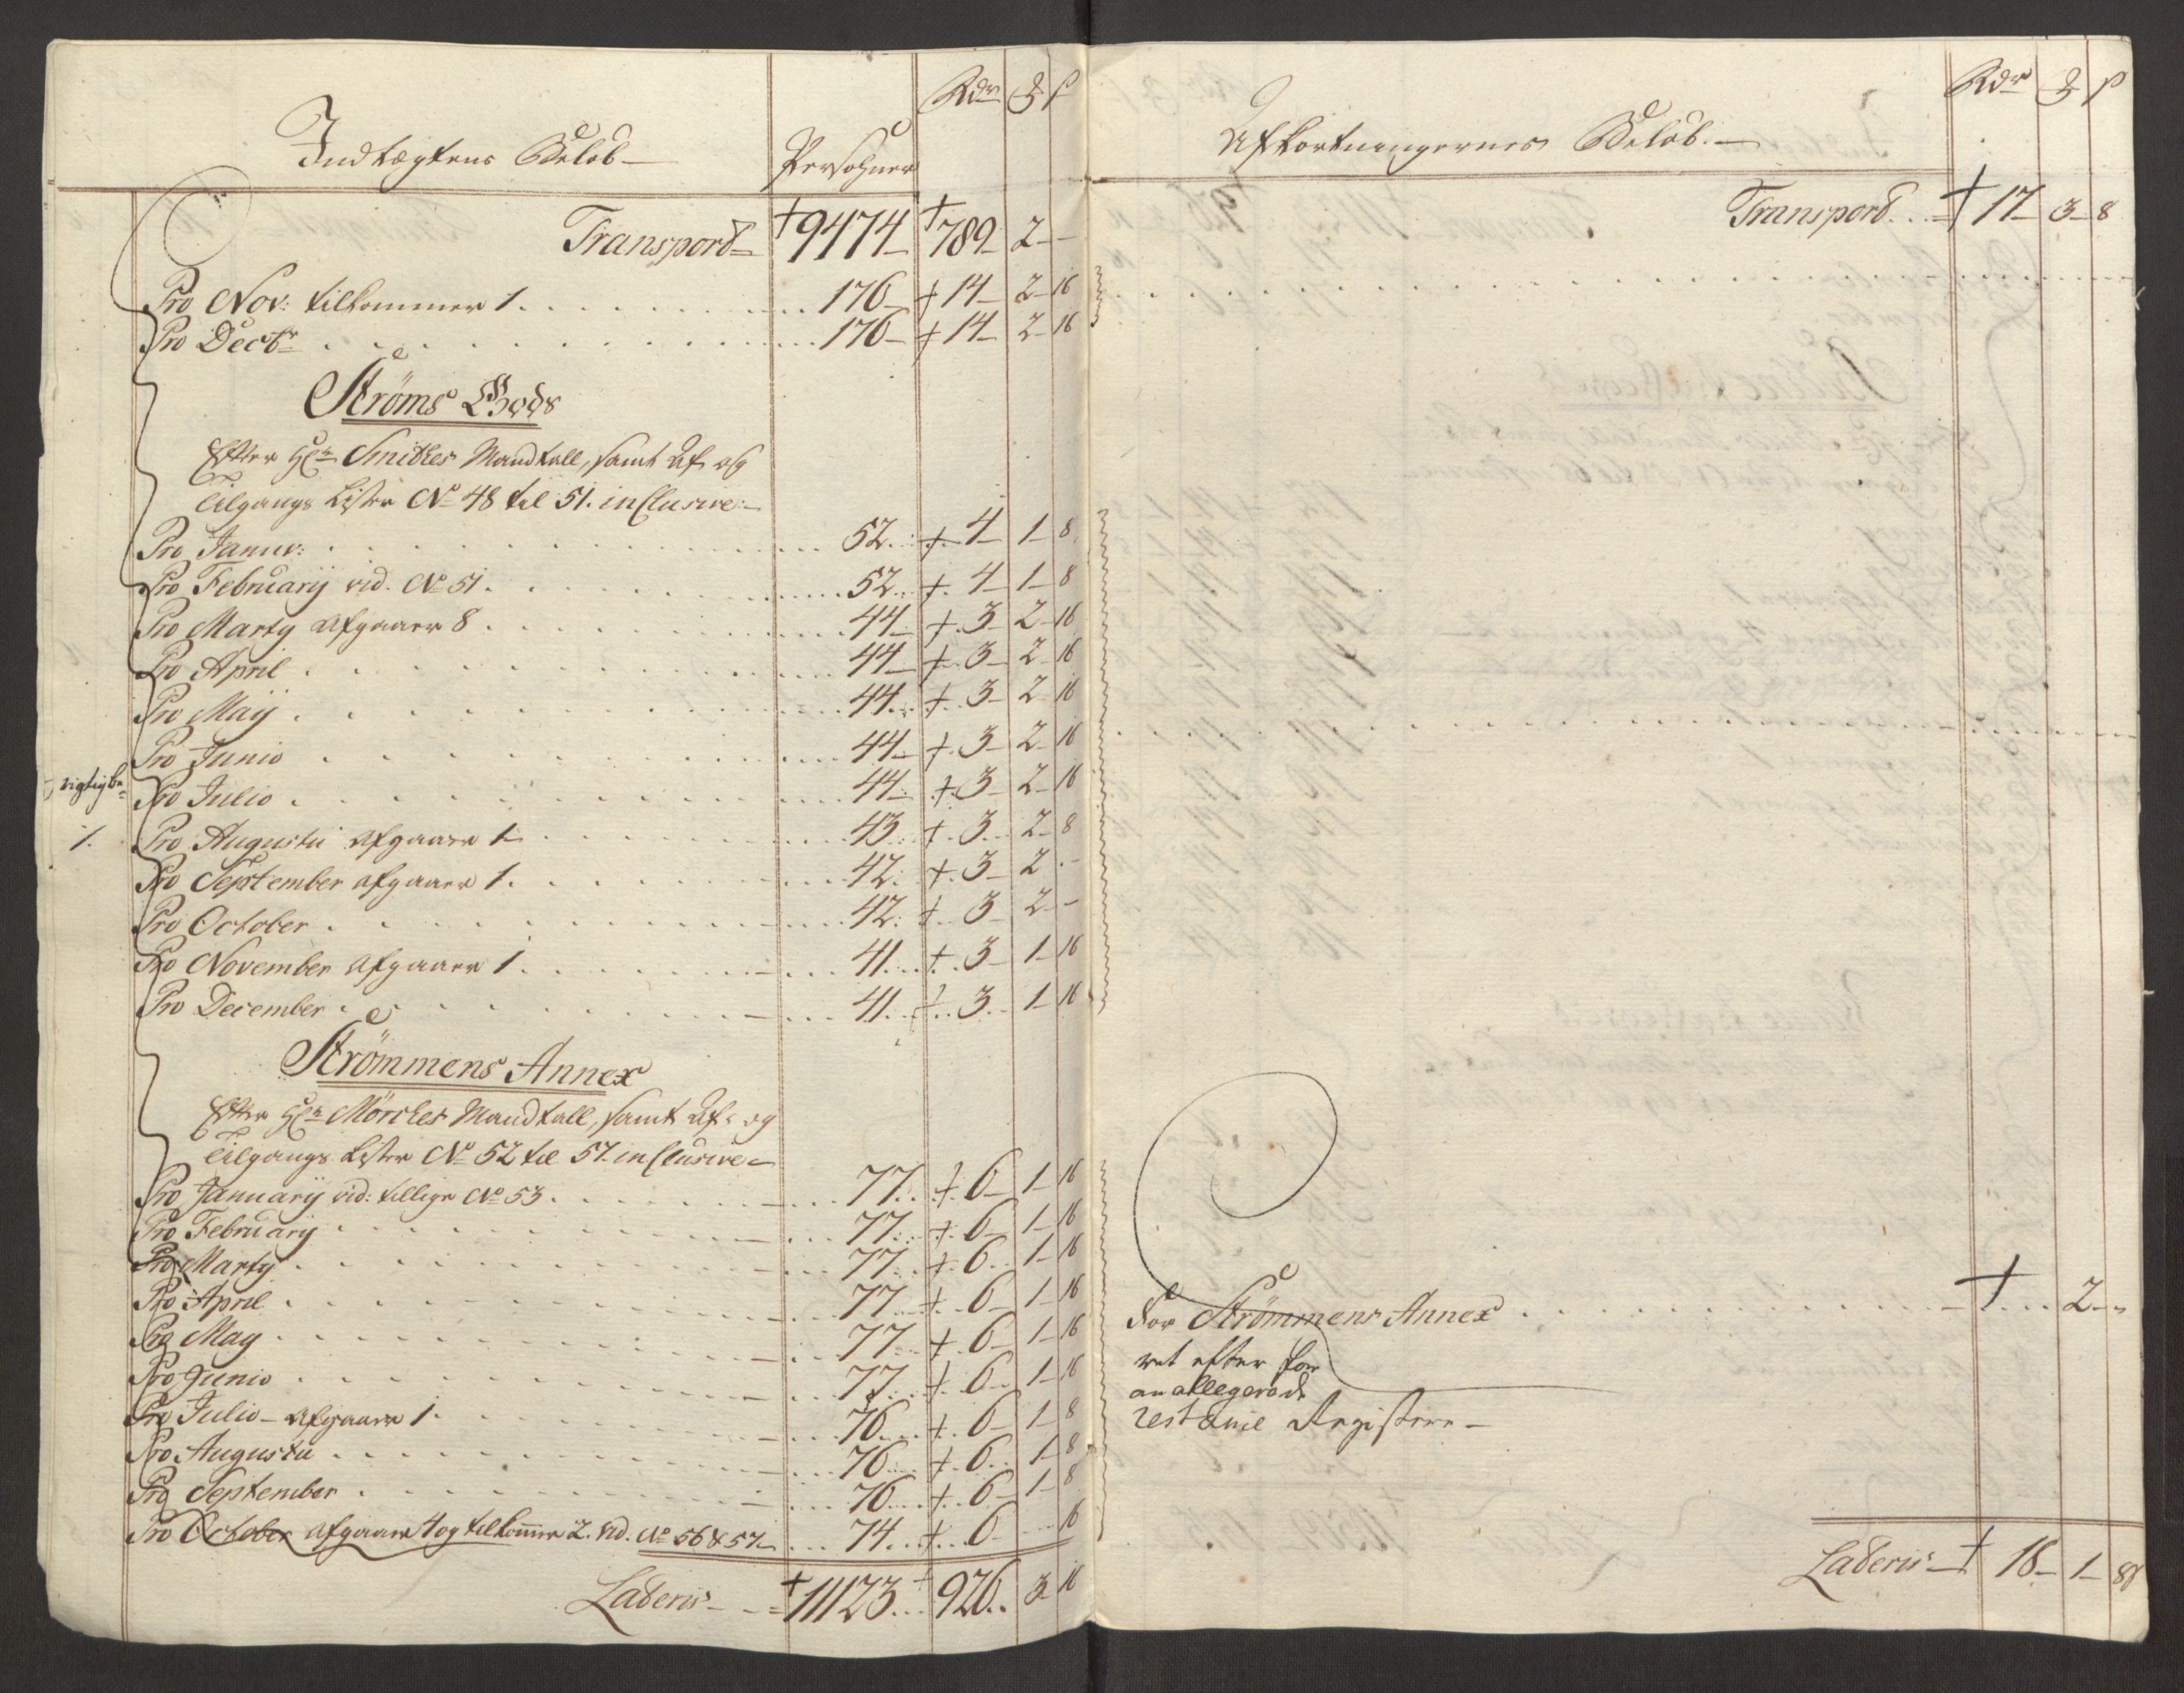 Indtægtens Beløb — Persohner Rdr ꝫ ß
Transpord 9474 789 2 -
Pro Nov: tilkommer 1. 176 14 2 16
Pro Decbr 176 14 2 16
Ströms Gods
Efter Hr Smithes Mandtall, samt Af og
Tilgangs Lister No 48 til 51. inclusive
Pro Januv: 52 4 1 8
Pro Februarij vid. No 51. 52 4 1 8
Pro Marty Afgaaer 8 44 3 2 16
Pro April 44 3 2 16
Pro Maij 44 3 2 16
Pro Junio 44 3 2 16
rigtig
Pro Julio 44 3 2 16
1. Pro Augustii Afgaaer 1 43 3 2 8
Pro September afgaaer 1. 42 3 2 -
Pro October 42 3 2 -
Pro November Afgaaer 1 41 3 1 16
Pro December 41 3 1 16
Strömmens Annex
Efter Hr Mörches Mandtall, samt Af- og
Tilgangs Lister No 52 til 57 inclusive
Pro Januarij vid: tillige No 53 77 6 1 16
Pro Februarij 77 6 1 16
Pro Marty 77 6 1 16
Pro April 77 6 1 16
Pro May 77 6 1 16
Pro Junio 77 6 1 16
Pro Julio - Afgaaer 1. 76 6 1 8
Pro Augustii 76 6 1 8
Pro September 76 6 1 8
Pro October Afgaaer 4 og tilkommer 2. vid. No 56 & 57 74 6 16
Lateris 11123 926 3 16
Afkortningernes Beløb. — Rdr ꝫ ß
Transpord 17 3 8
For Strömmens Annex 2 -
ret efter for
an allegerede
restance Registere -
Lateris 18 1 8